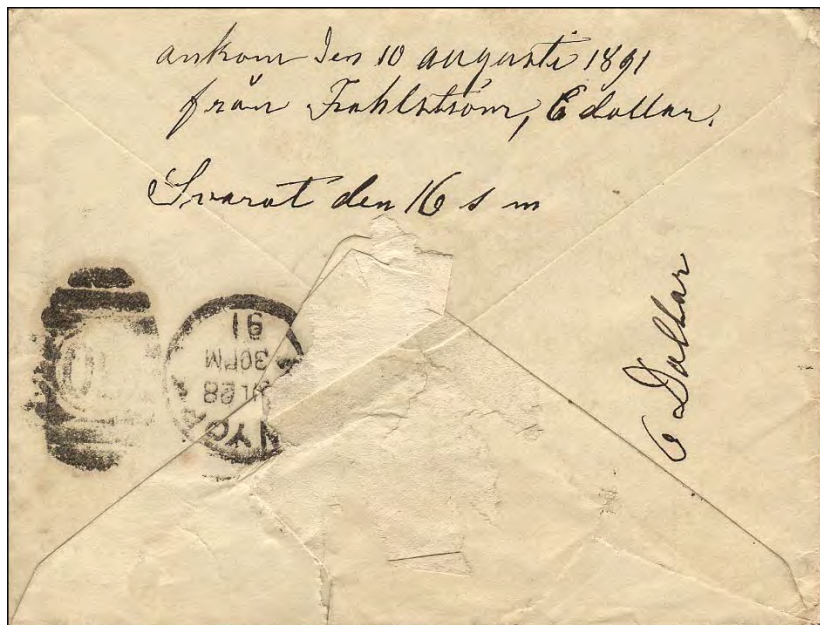 ankom den 10 augusti 1891
från Fahlström, 6 dollar.
Svarat den 16 s m
6 Dollar
NYC
JUL 28
30PM
91